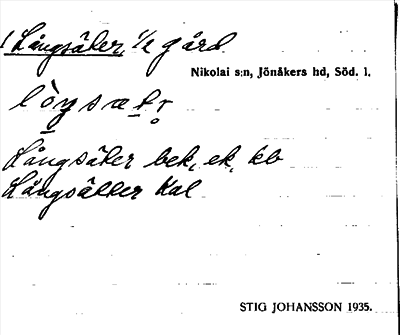 Långsäter, 1/2 gård
Nikolai s:n, Jönåkers hd, Söd. l.
Långsäter bek, ek, kb
Långsätter Kal
STIG JOHANSSON 1935.